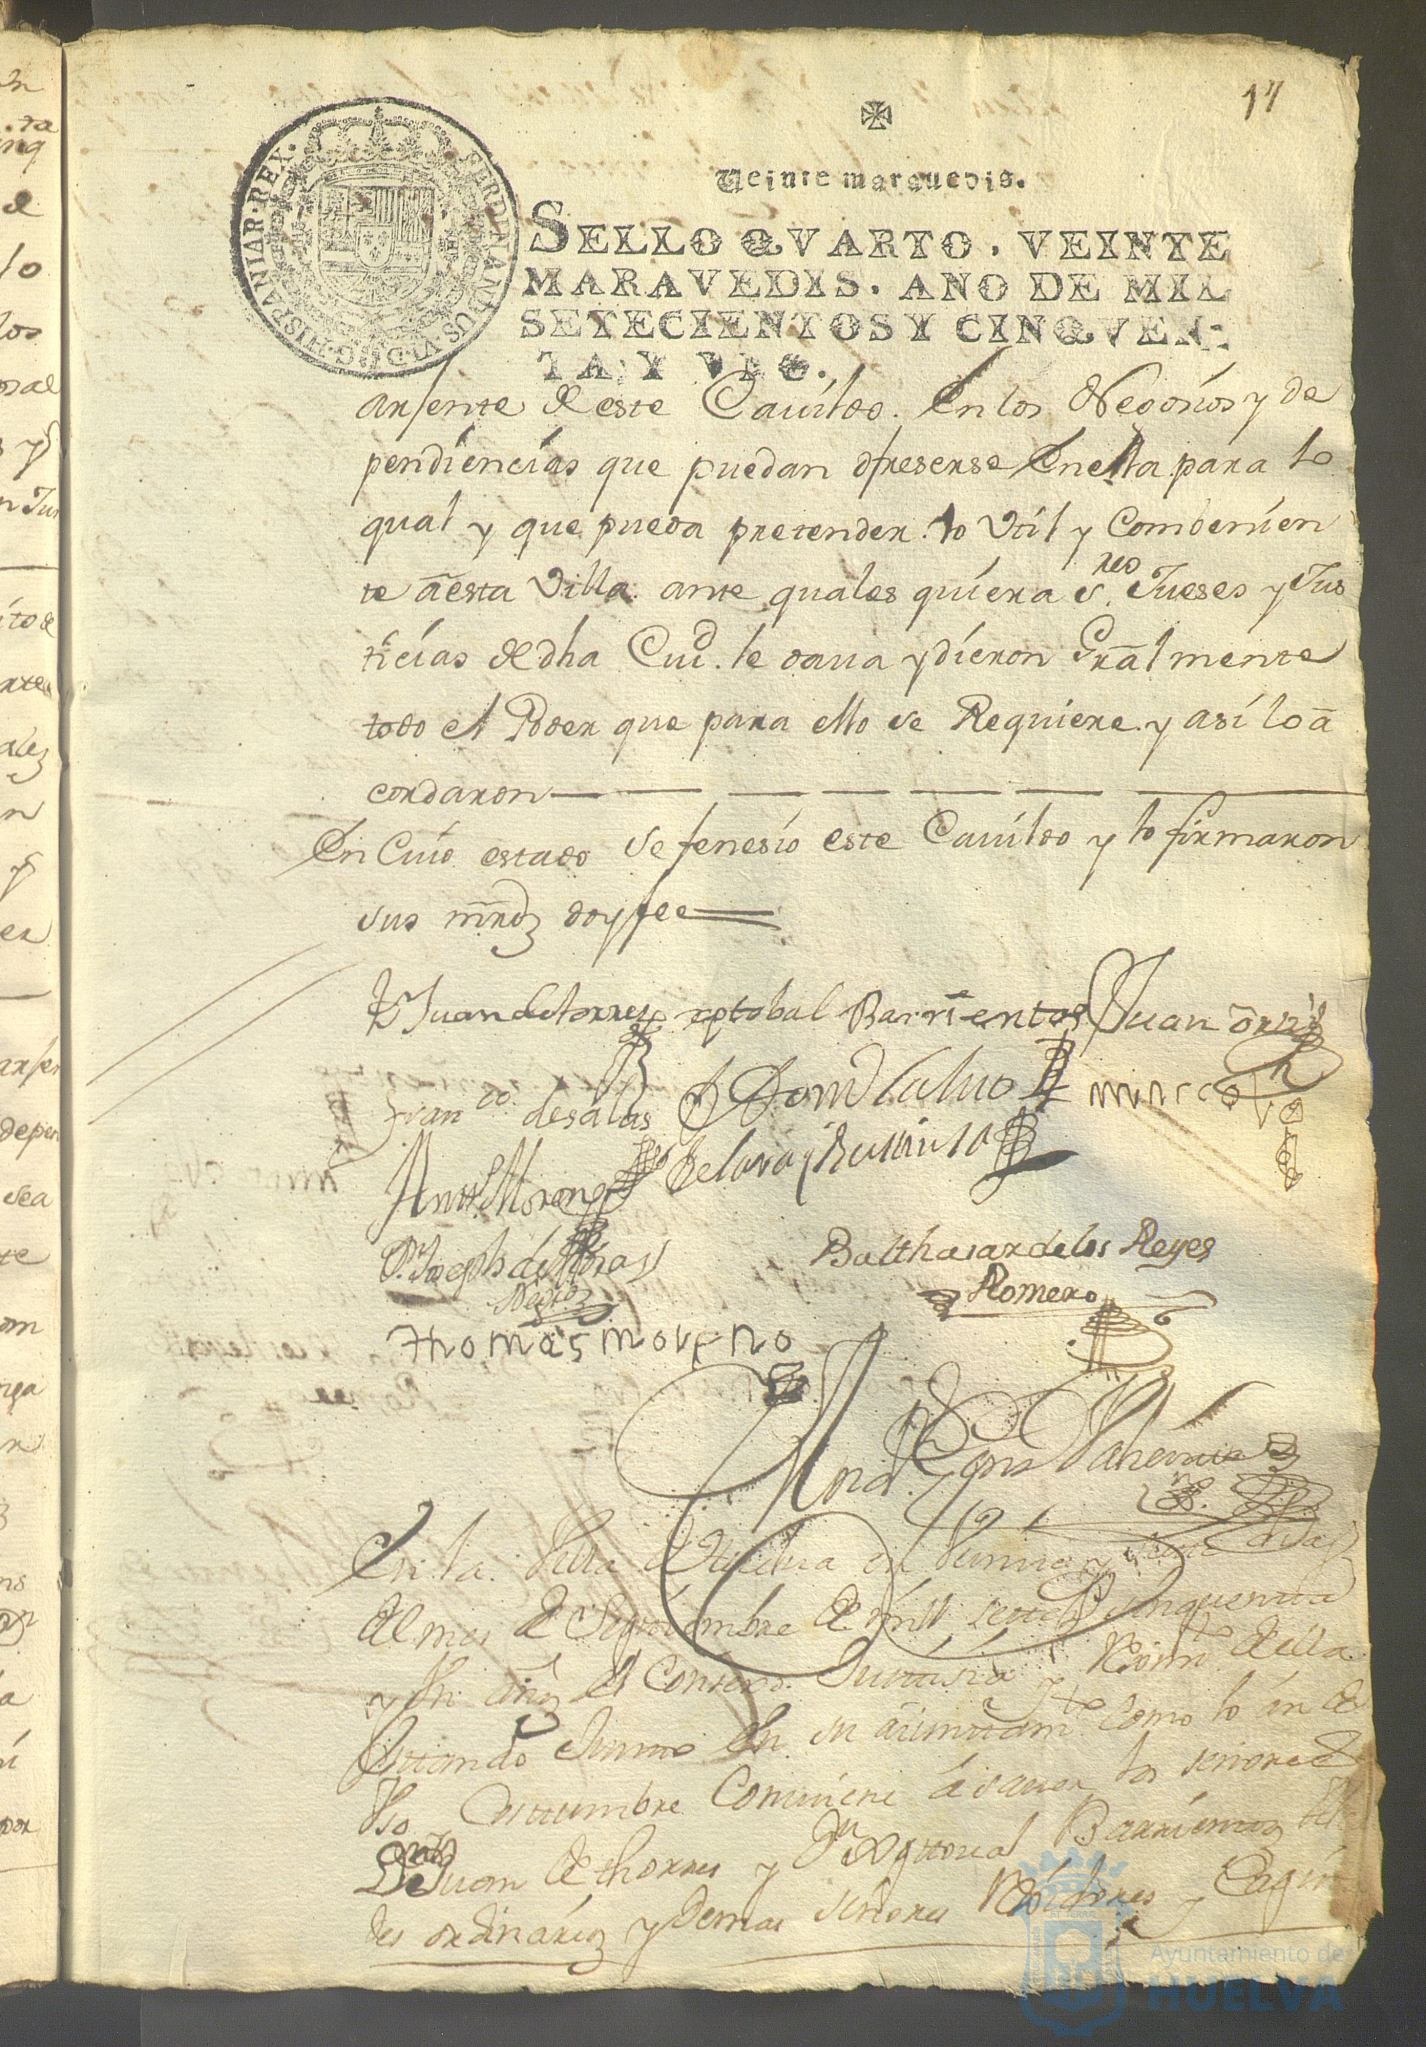 17
Veinte maravedis.
SELLO QVARTO, VEINTE
MARAVEDIS, AÑO DE MIL
SETECIENTOS Y CINQVEN-
TA, Y VNO.
FERDINANDUS·VI·D·G·HISPANIAR·REX·
arsente de este Cavildo. En los Negosios y de
pendiencias que puedan ofreserse En ella para lo
qual y que pueda pretender lo Util y Combenien
te a esta Villa ante quales quiera s.res Jueses y Jus
ticias de dha Ciud. le dava y dieron Gralmente
todo el Poder que para ello se Requiere y asi lo a
cordaron
En Cuio estado se fenesio este Cavildo y lo firmaron
sus mrdz doy fee
Juan de torres xptobal Barrientos Juan
Franco de salas
Antto Moreno
Dn Joseph de
Balthasar de los Reyes
Romero
thomas moreno
En la Villa de Huelva en Veinte y siete dias
del mes de Septiembre de mill settezs sinquenta
y Un años el Consexo Justisia y Reximto de ella
estando Juntos En su aiuntamto como lo an de
Uso Costumbre Combiene a saver los señores
Juan de thorres y Dn Xpttoval Barrientos
des ordinarios y demas señores Rexidores y
Ayuntamiento de
HUELVA